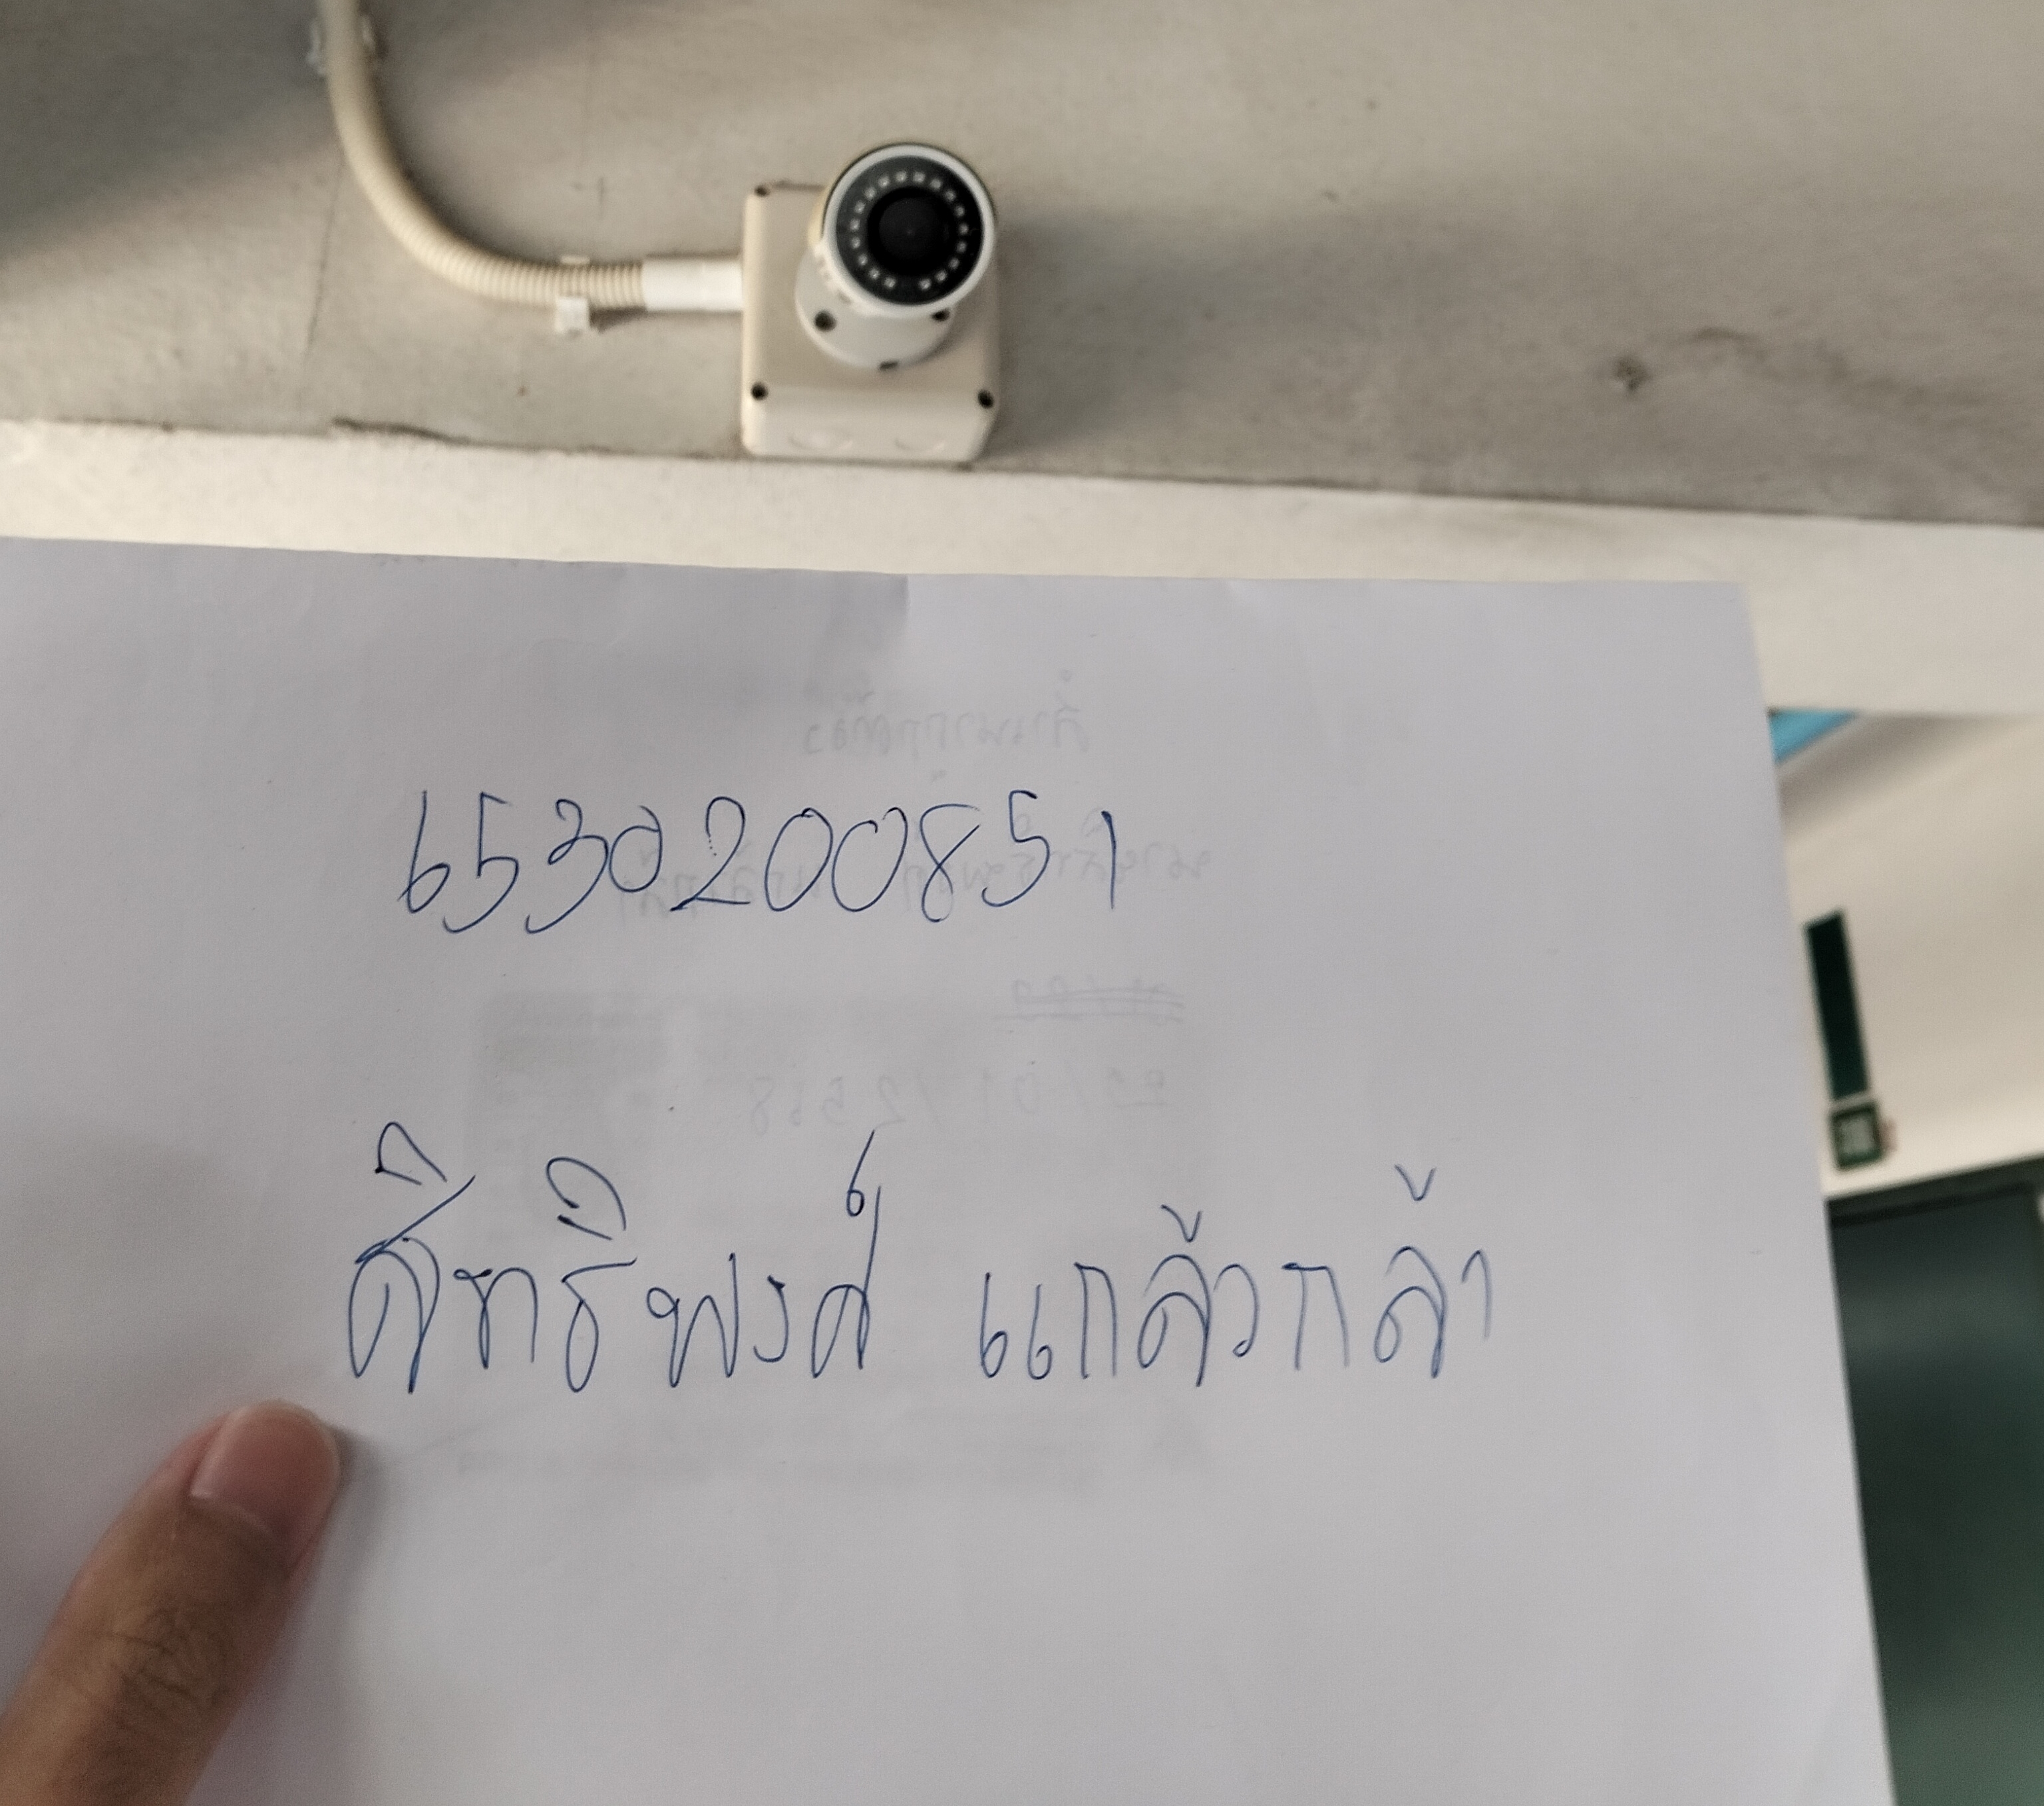 6530200851
สิทธิพงศ์ แกล้วกล้า